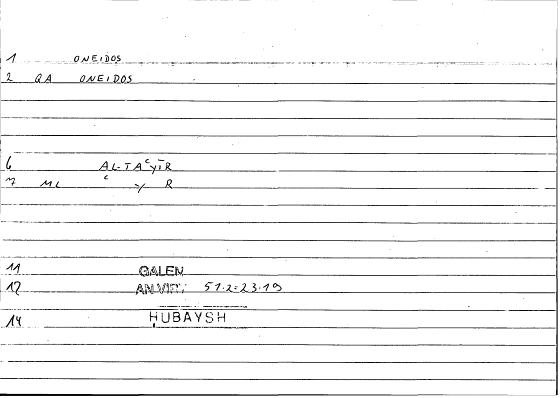 1 ONEIDOS
2 QA ONEIDOS
6 AL-TAʿYĪR
7 ML ʿ Y R
11 GALEN
12 51.2:23.19
14 ḤUBAYSH